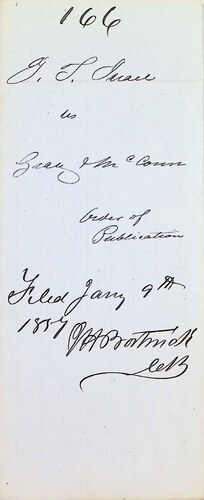 166
J. T.
vs
Gray & McConn
Order of
Publication
Filed Jany 9th
1857 Bostwick
Clk